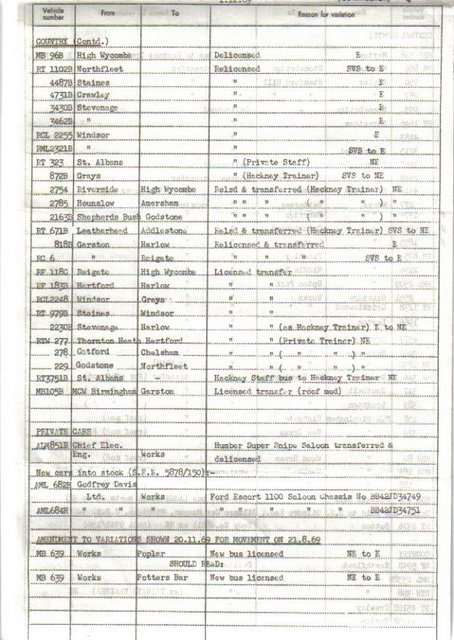 1.12.69
Vehicle number From To Reason for variation
COUNTRY (Contd.)
MB 96B High Wycombe Delicensed E
RT 1102B Northfleet Relicensed SVS to E
4487B Staines " E
4731B Crawley " E
3430B Stevenage " E
3462B " " E
RCL 2255 Windsor " E
RML2321B " " SVS to E
RT 323 St. Albans " (Private Staff) NE
872B Grays " (Hackney Trainer) SVS to NE
2754 Riverside High Wycombe Relsd & transferred (Hackney Trainer) NE
2785 Hounslow Amersham " " " ( " ) "
2163B Shepherds Bush Godstone " " " ( " ) "
RT 671B Leatherhead Addlestone Relsd & transferred (Hackney Trainer) SVS to NE
818B Garston Harlow Relicensed & transferred E
RC 6 " Reigate " " SVS to E
RF 118C Reigate High Wycombe Licensed transfer
RF 183B Hertford Harlow " "
RCL2248 Windsor Grays " "
RT 979B Staines Windsor " "
2230B Stevenage Harlow " " (as Hackney Trainer) E to NE
RTW 277 Thornton Heath Hertford " " (Private Trainer) NE
278 Catford Chelsham " " ( " ) "
229 Godstone Northfleet " " ( " ) "
RT3751B St. Albans - Hackney Staff bus to Hackney Trainer NE
MB105B MCW Birmingham Garston Licensed transfer (roof mod)
PRIVATE CARS
Chief Elec. Humber Super Snipe Saloon transferred &
Eng. Works delicensed
New cars into stock (S.F.E. 5878/150):-
AML 682H Godfrey Davis
Ltd. Works Ford Escort 1100 Saloon Chassis No BB42JD34749
AML684H " " " " " " " " BB42JD34751
AMENDMENT TO VARIATIONS SHOWN 20.11.69 FOR MOVEMENT ON 21.8.69
MB 639 Works Poplar New bus licensed NE to E
SHOULD READ:
MB 639 Works Potters Bar New bus licensed NE to E